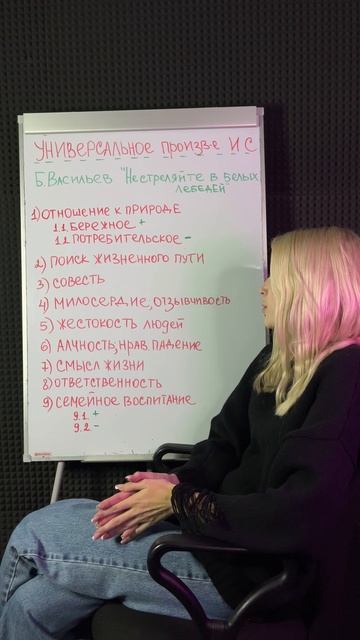 УНИВЕРСАЛЬНОЕ произв-е ИС
Б.Васильев "Не стреляйте в белых
лебедей"
1) ОТНОШЕНИЕ К ПРИРОДЕ
1.1. БЕРЕЖНОЕ +
1.2. ПОТРЕБИТЕЛЬСКОЕ -
2) ПОИСК ЖИЗНЕННОГО ПУТИ
3) СОВЕСТЬ
4) МИЛОСЕРДИЕ, ОТЗЫВЧИВОСТЬ
5) ЖЕСТОКОСТЬ ЛЮДЕЙ
6) АЛЧНОСТЬ, НРАВ. ПАДЕНИЕ
7) СМЫСЛ ЖИЗНИ
8) ОТВЕТСТВЕННОСТЬ
9) СЕМЕЙНОЕ ВОСПИТАНИЕ
9.1. +
9.2. -